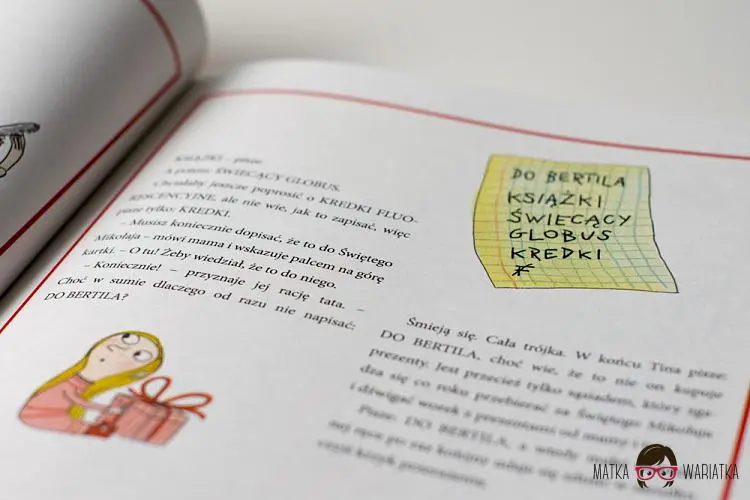 KSIĄŻKI – pisze.
A potem: ŚWIECĄCY GLOBUS.
Chciałaby jeszcze poprosić o KREDKI FLUO-
RESCENCYJNE, ale nie wie, jak to zapisać, więc
pisze tylko: KREDKI.
– Musisz koniecznie dopisać, że to do Świętego
Mikołaja – mówi mama i wskazuje palcem na górę
kartki. – O tu! Żeby wiedział, że to do niego.
– Koniecznie! – przyznaje jej rację tata. –
Choć w sumie dlaczego od razu nie napisać:
DO BERTILA?
DO BERTILA
KSIĄŻKI
ŚWIECĄCY
GLOBUS
KREDKI
Śmieją się. Cała trójka. W końcu Tina pisze:
DO BERTILA, choć wie, że to nie on kupuje
prezenty. Jest przecież tylko sąsiadem, który zga-
dza się co roku przebierać za Świętego Mikołaja
i dźwigać worek z prezentami od mamy i
Pisze: DO BERTILA, a wtedy
MATKA WARIATKA